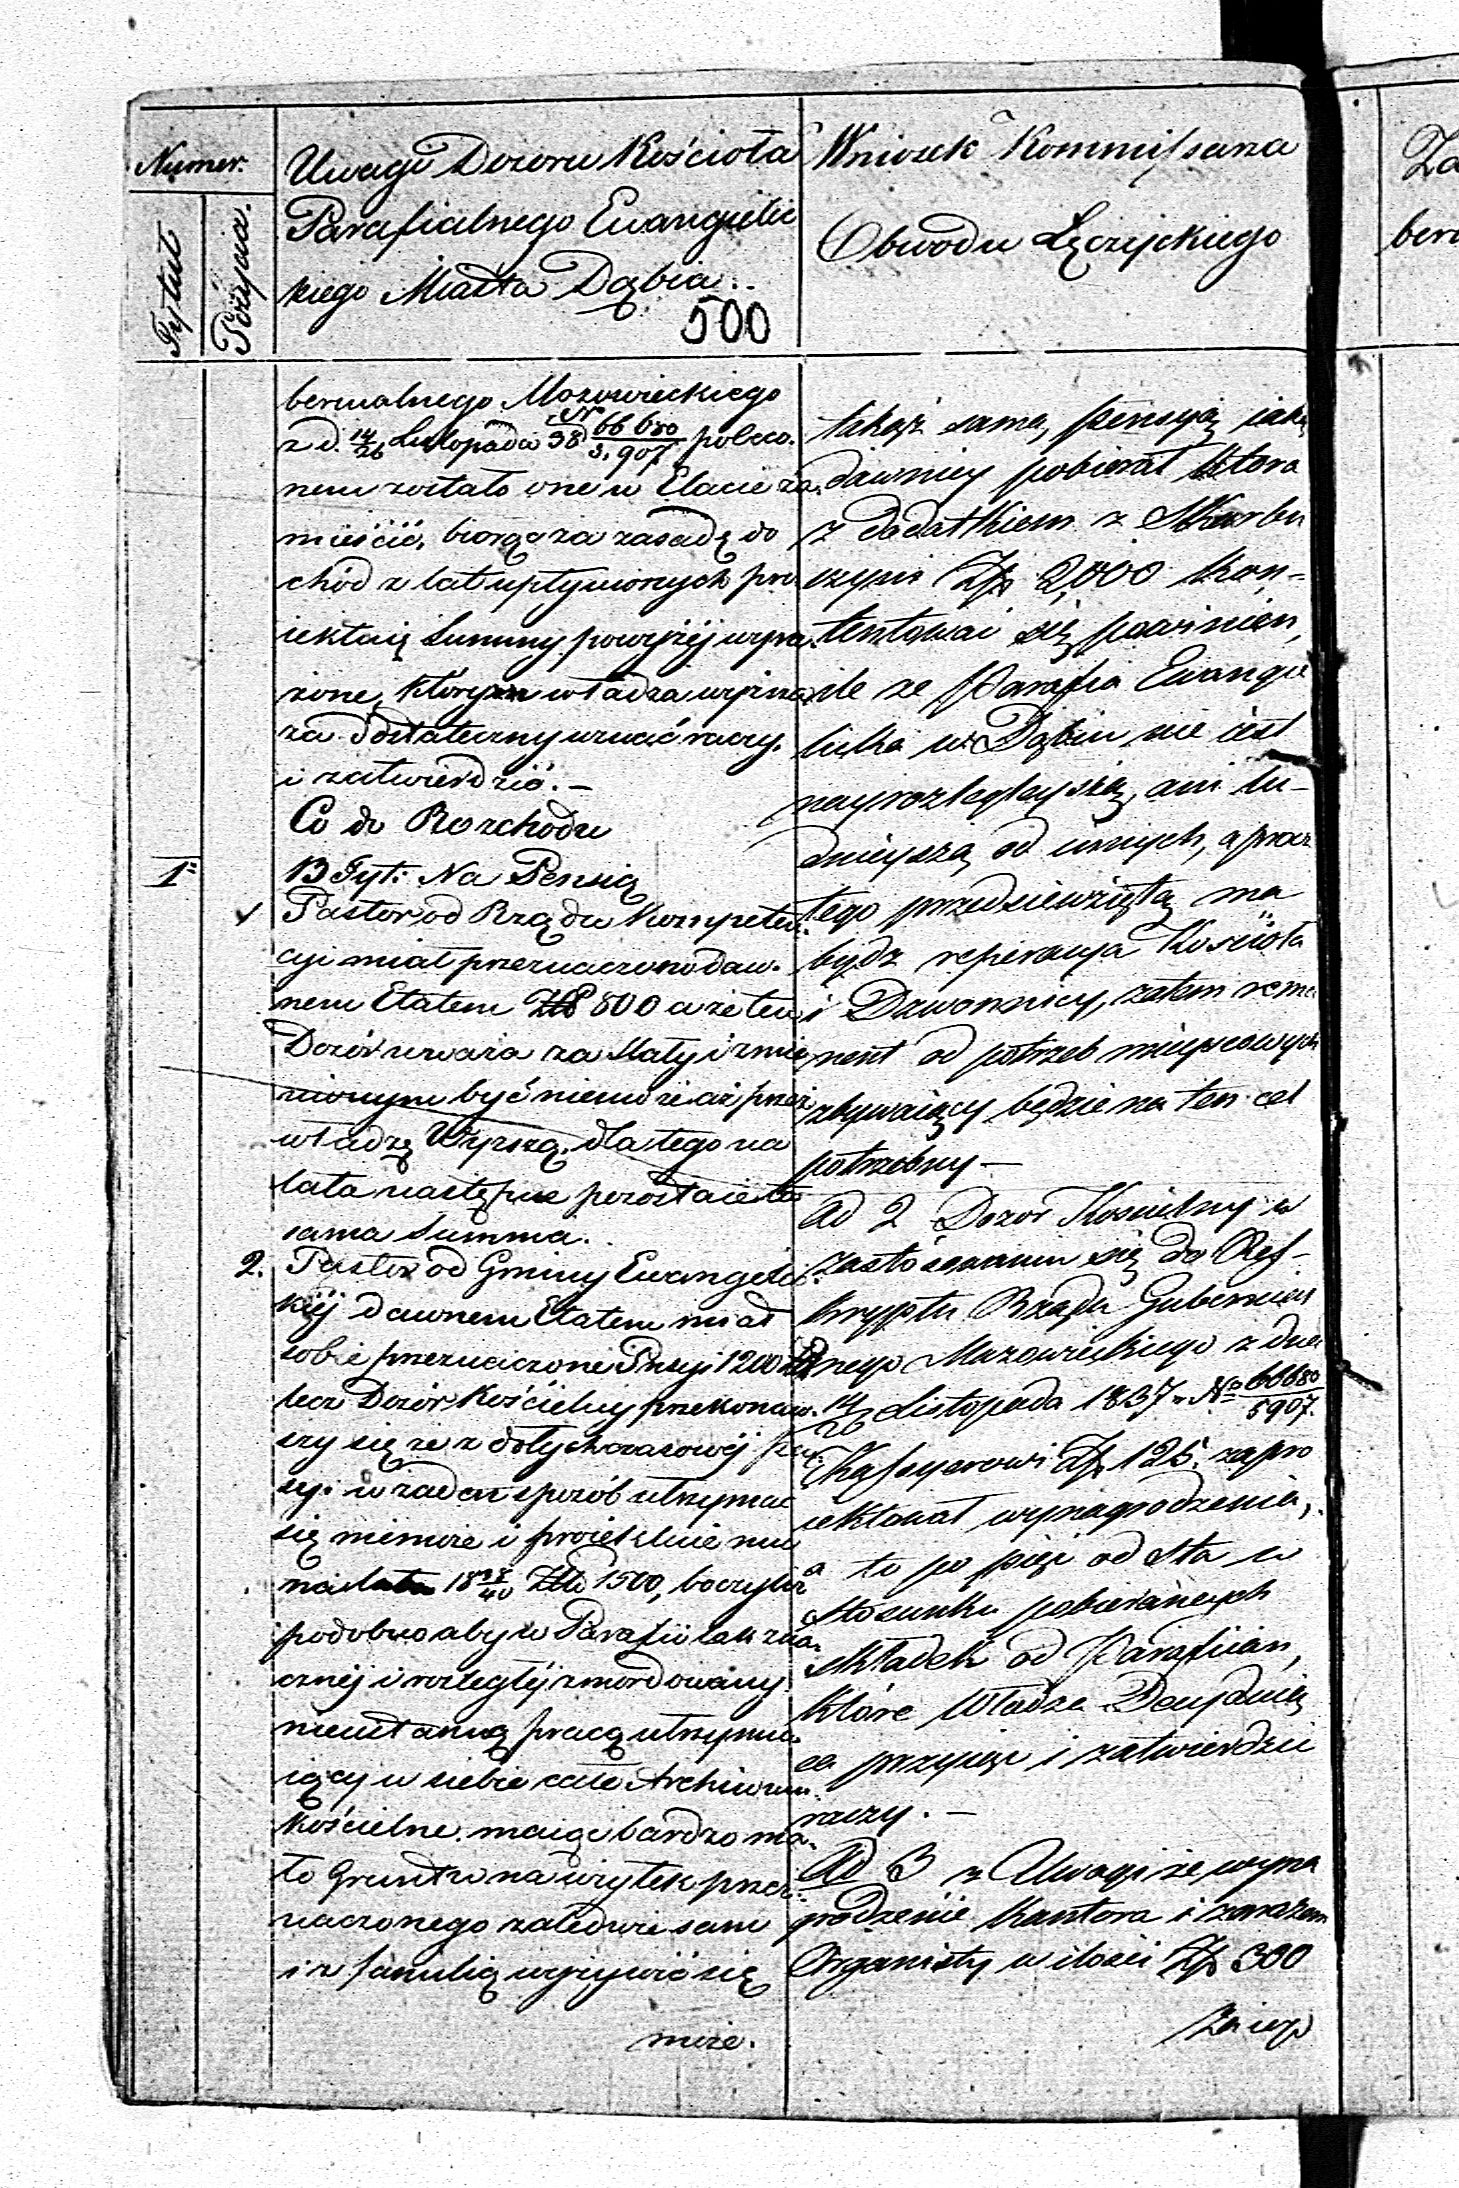 Numer.
Tytuł
Pozycia.
Uwagi Dozoru Kościoła
Parafialnego Ewangielic
kiego Miasta Dąbia.
500
bernialnego Mazowieckiego
z d. 14/26 Listopada 38 N 66680/5.907 poleco-
nem zostało one w Etacie za-
mieścić, biorąc za zasadę do
chód z lat upłynionych pro-
iektuię Summy powyżéj wyra-
żone, które władza wyższa
za dostateczny uznać raczy.
i zatwierdzić. –
Co do Rozchodu
1º
B Tyt: Na Pensią
1 Pastor od Rządu Kompeten-
cyi miał przeznaczono daw-
nem Etatem Złp 800 a że ten
Dozór uważa za stały i zmie
nionym być niemoże aż przez
władzę Wyższą, dla tego na
lata następne pozostaie ta
sama Summa.
2. Pastor od Gminy Ewangelic-
kiéj dawnem Etatem miał
sobie przeznaczone Pensyi 1200 Złp
lecz Dozór Kościelny przekonaw-
szy się że z dotychczasowéj Pen-
syi w żaden sposób utrzymać
się niemoże i proiektuie mu
na lata 18 38/40 Złp 1500, bo czyliż
podobno aby w Parafii tak zna-
cznéj i rozległéj zmordowany
nieustanną pracą utrzymu-
iący u siebie całe Archiwum
Kościelne. maiąc bardzo ma-
ło Gruntu na użytek przez-
naczonego zaledwie sam
i z familią wyżywić się
może.
Wniosek Kommissarza
Obwodu Łęczyckiego
takąż samą, pensyą iaką
dawniey pobierał która
z dodatkiem z Skarbu
czyni Złp 2,000 kon-
tentować się powinien,
ile że Parafia Ewangie
licka w Dąbiu nie iest
nayrozlegleyszą, ani lu-
dnieyszą od innych, a prócz
tego przedsiewziętą ma
bydź reperacya Kościoła
i Dzwonnicy, zatem rema
nent od potrzeb mieyscowych
zbywaiący będzie na ten cel
potrzebny –
Ad 2 Dozór Kościelny w
zastósowaniu się do Res-
kryptu Rządu Gubernial
nego Mazowieckiego z dnia
14/26 Listopada 1837 Nº 66680/5907.
Kassyerowi Złp 125. zapro
iektował wynagrodzenia,
a to po pięć od sta w
stosunku pobieranych
składek od Parafian,
które Władza
przyiąć i zatwierdzić
raczy. –
Ad 3 z Uwagi że wyna
grodzenie Kantora i zarazem
Organisty w ilości Złp 300
Za
bern